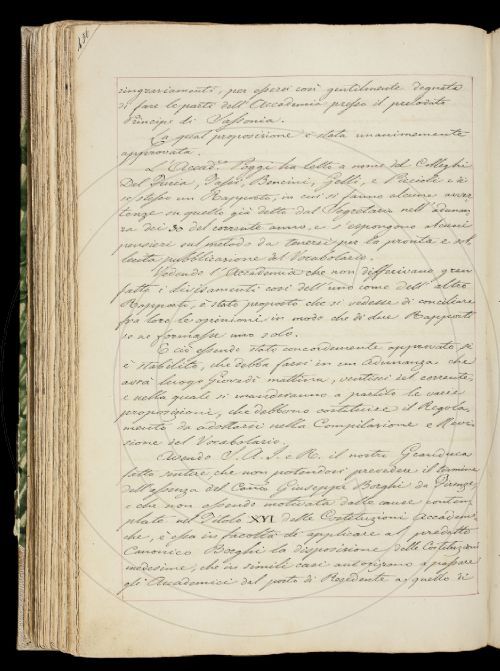 430
ringraziamenti, per essersi così gentilmente degnata
di fare le parti dell'Accademia presso il prelodato
Principe di Sassonia.
La qual proposizione è stata unanimemente
approvata.
L'Accad.º Poggi ha letto a nome dei Colleghi
Del Furia, Bencini, Zelli, e Piccioli e di
se stesso un Rapporto, in cui si fanno alcune avver
tenze su quello già detto dal Segretario nell'adunan
za dei 30 del corrente anno, e s'espongono alcuni
pensieri sul metodo da tenersi per la pronta e sol
lecita pubblicazione del Vocabolario.
Vedendo l'Accademia che non differivano gran
fatto i divisamenti così dell'uno come dell'altro
Rapporto, è stato proposto che si vedesse di conciliare
fra loro le opinioni in modo che di due Rapporti
se ne formasse uno solo.
E ciò essendo stato concordemente approvato, si
è stabilito, che debba farsi in un'adunanza che
avrà luogo Giovedì mattina, ventisei del corrente,
e nella quale si manderanno a partito le varie
proposizioni, che debbono costituire il Regola
mento da adottarsi nella Compilazione e Revi
sione del Vocabolario.
Avendo S. A. I. e R. il nostro Granduca
fatto sentire che non potendosi prevedere il termine
dell'assenza del Can.co Giuseppe Borghi da Firenze,
e che non essendo motivata dalle cause contem
plate nel Titolo XVI delle Costituzioni Accademi
che, è essa in facoltà di applicare al predetto
Canonico Borghi la disposizione delle Costituzioni
medesime, che in simili casi autorizzano a passare
gli Accademici dal posto di Residente a quello di